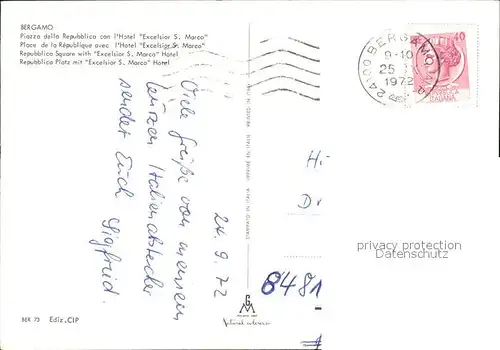 BERGAMO
Piazza della Repubblica con l'Hotel "Excelsior S. Marco"
Place de la République avec l'Hotel "Excelsior S. Marco"
Repubblica Square with "Excelsior S. Marco" Hotel
Repubblica Platz mit "Excelsior S. Marco" Hotel
24.9.72
Viele Grüße von meinem
kurzen Italienabstecher
sendet Euch Sigfried.
BER 73 Ediz. CIP
24100 BERGAMO
9-10
25
1972
40
ITALIANA
Hi
D
8481
privacy protection
Datenschutz